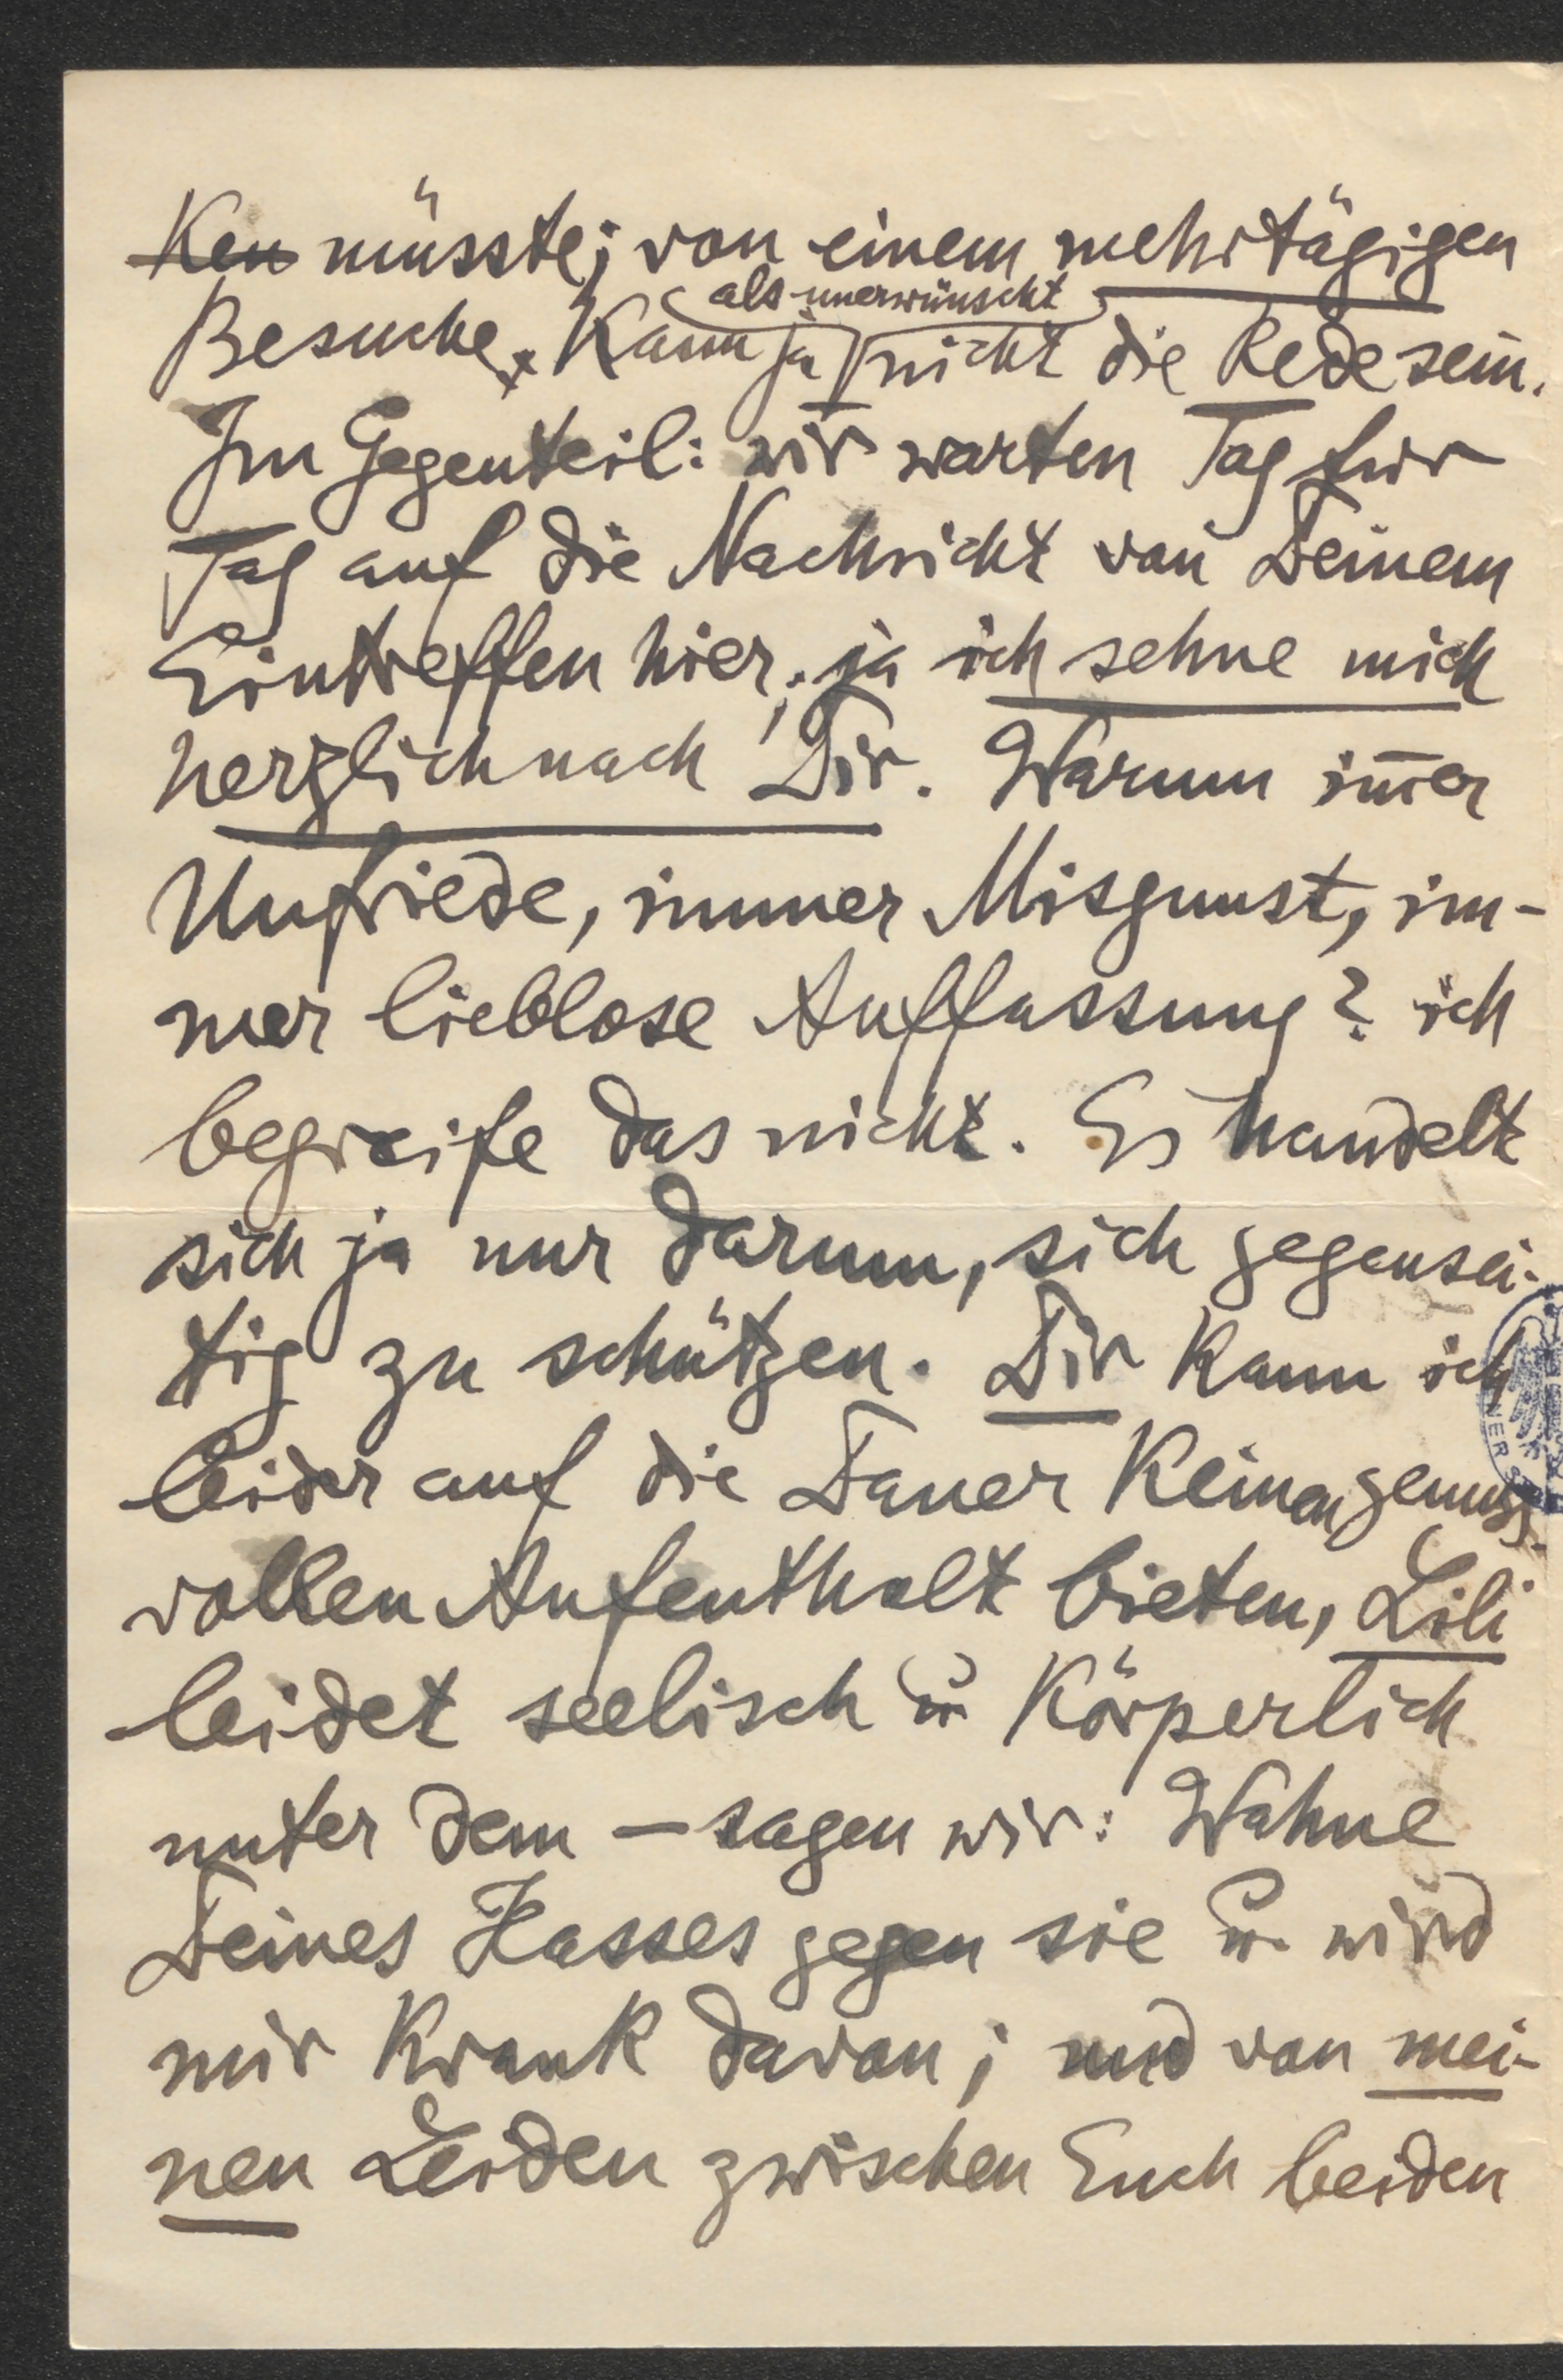 ken müsste; von einem mehrtägigen
als unerwünscht
Besuche kann ja nicht die Rede sein.
Im Gegenteil: wir warten Tag für
Tag auf die Nachricht von Deinem
Eintreffen hier; ja ich sehne mich
herzlich nach Dir. Warum im̅er
Unfriede, immer Misgunst, im-
mer lieblose Auffassung? ich
begreife das nicht. Es handelt
sich ja nur darum, sich gegensei-
tig zu schützen. Dir kann ich
leider auf die Dauer keinen genuss-
vollen Aufenthalt bieten, Lili
leidet seelisch u. körperlich
unter dem – sagen wir: Wahne
Deines Hasses gegen sie u. wird
mir krank davon; und von mei-
nen Leiden zwischen Euch beiden